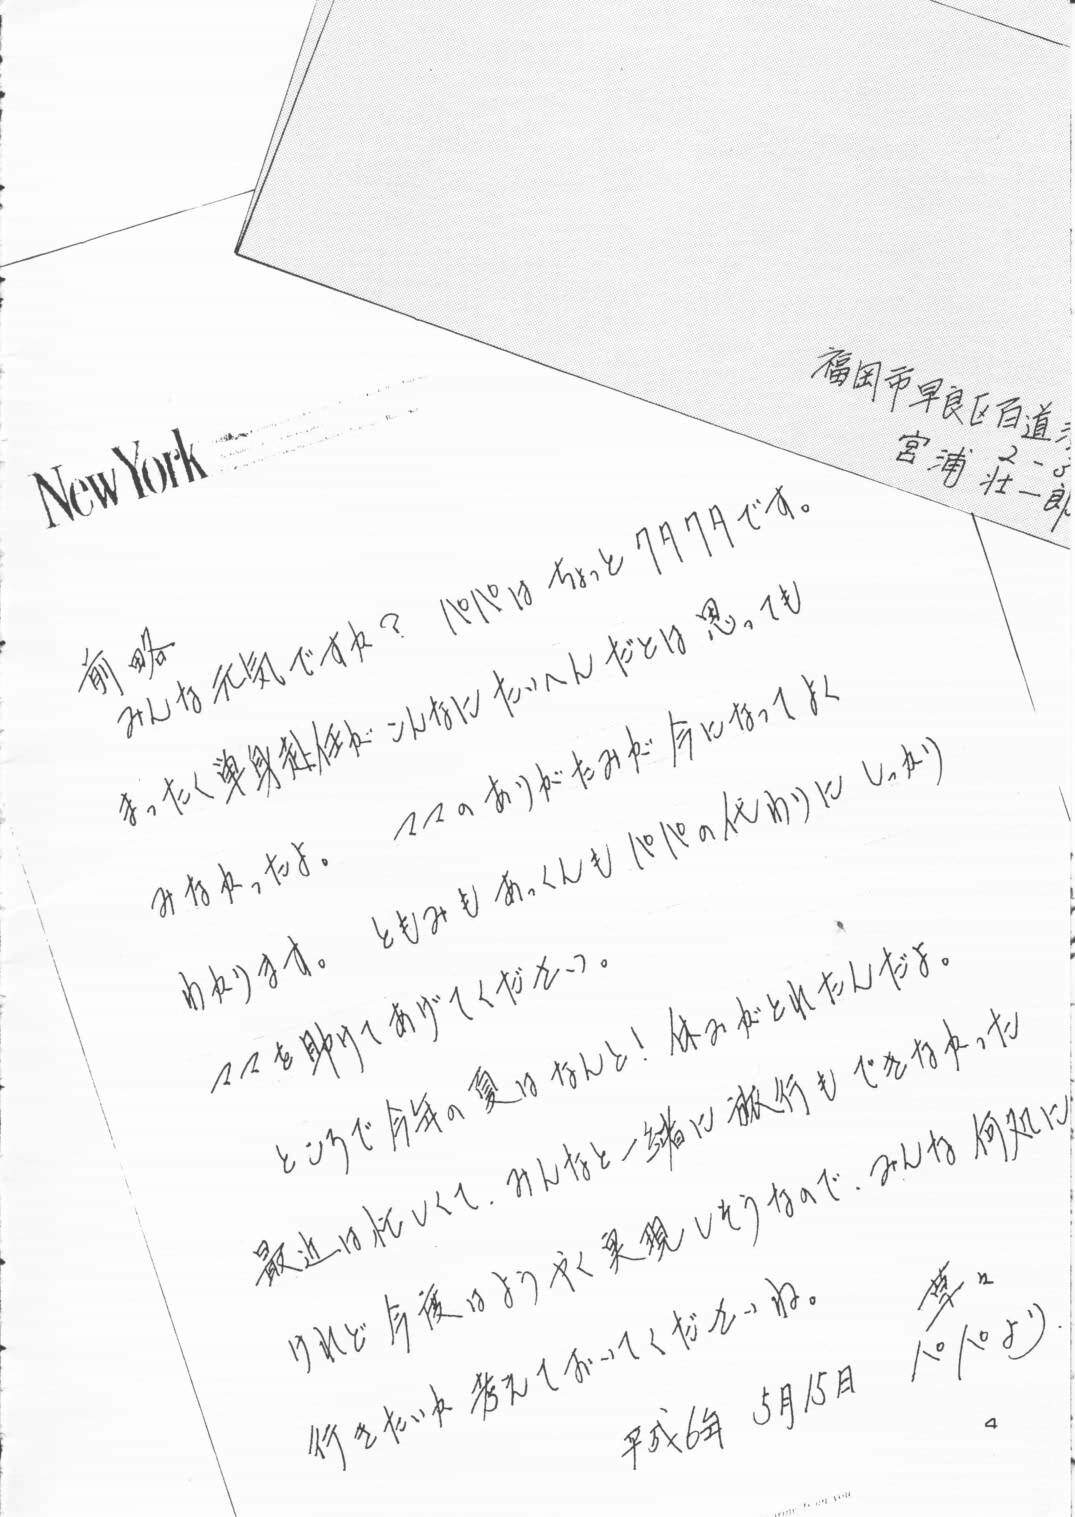 福岡市早良区百道
2-
宮浦 荘一郎
New York
前略
みんな元気ですか? パパはちょっとクタクタです。
まったく単身赴任がこんなにたいへんだとは思っても
みなかったよ。 ママのありがたみが今になってよく
わかります。 ともみもあっくんもパパの代わりにしっかり
ママを助けてあげてください。
ところで今年の夏はなんと!休みがとれたんだよ。
最近は忙しくて、みんなと一緒に旅行もできなかった
けれど今度はようやく実現しそうなので、みんな何処に
行きたいか考えておいてくださいね。
草々
平成6年 5月15日 パパより.
4
on you